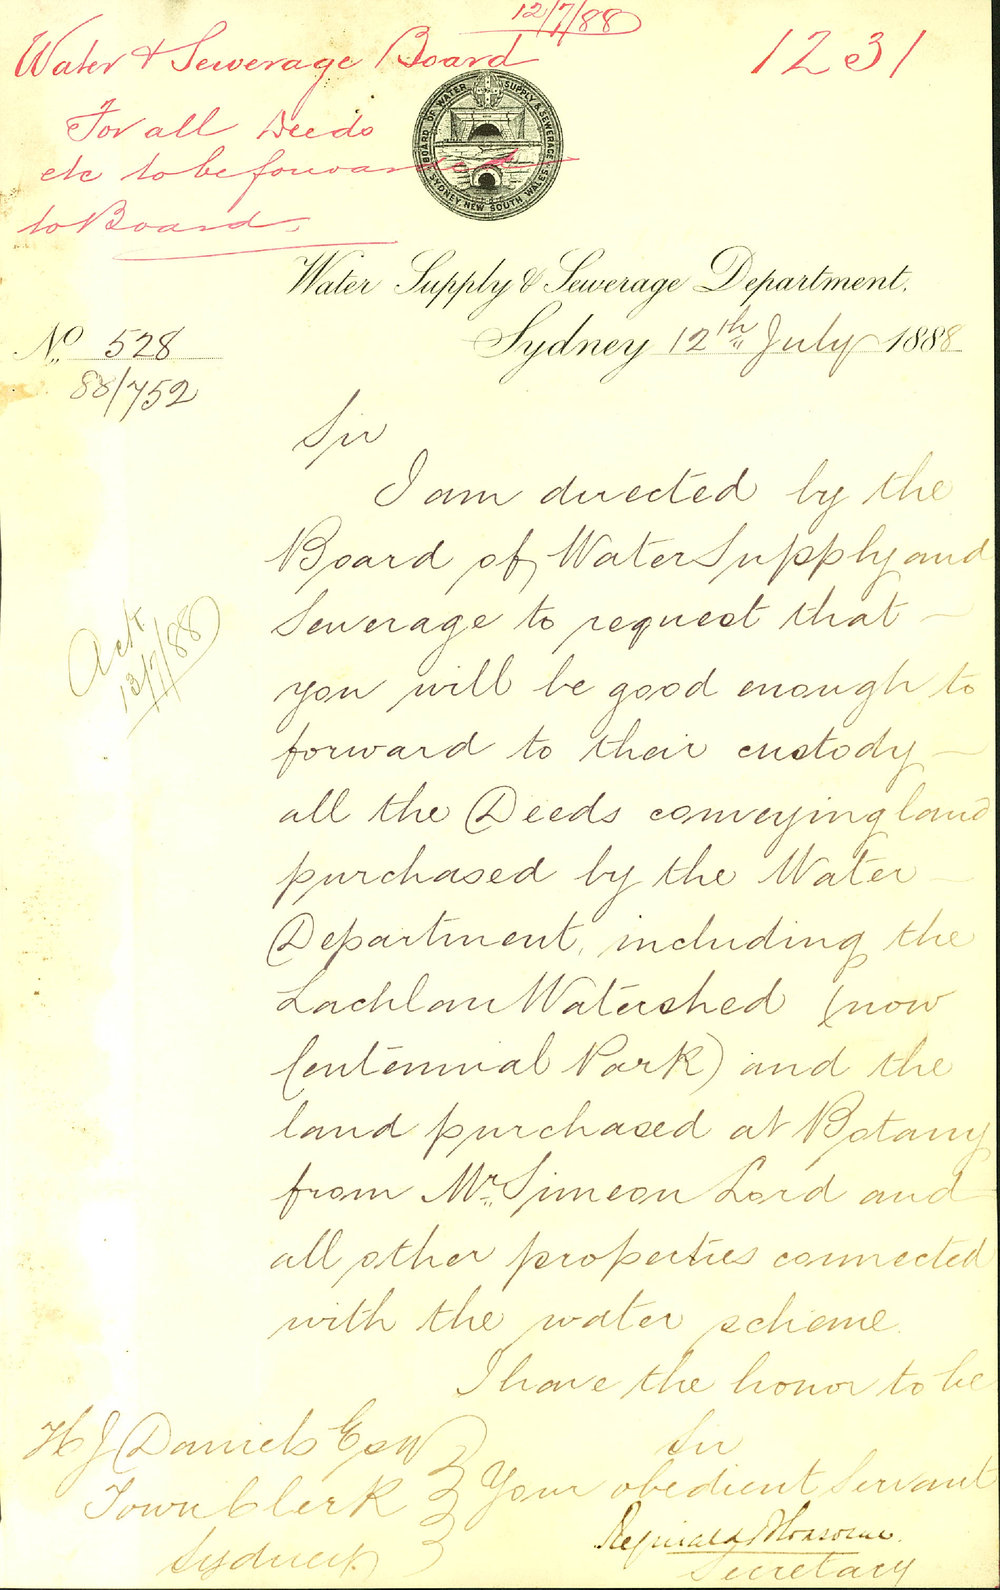 12/7/88
Water & Sewerage Board
1231
For all Deeds
etc to be forwarded
to Board.
BOARD OF WATER SUPPLY & SEWERAGE
SYDNEY, NEW SOUTH WALES
Water Supply & Sewerage Department.
Sydney 12th July 1888
No. 528
88/752
Sir
I am directed by the
Board of Water Supply and
Sewerage to request that
you will be good enough to
forward to their custody
all the Deeds conveying land
purchased by the Water
Department, including the
Lachlan Watershed (now
Centennial Park) and the
land purchased at Botany
from Mr. Simeon Lord and
all other properties connected
with the water scheme.
I have the honor to be
Sir
Your obedient Servant
Secretary
H J Daniels Esqr
Town Clerk
Sydney
Ack
13/7/88